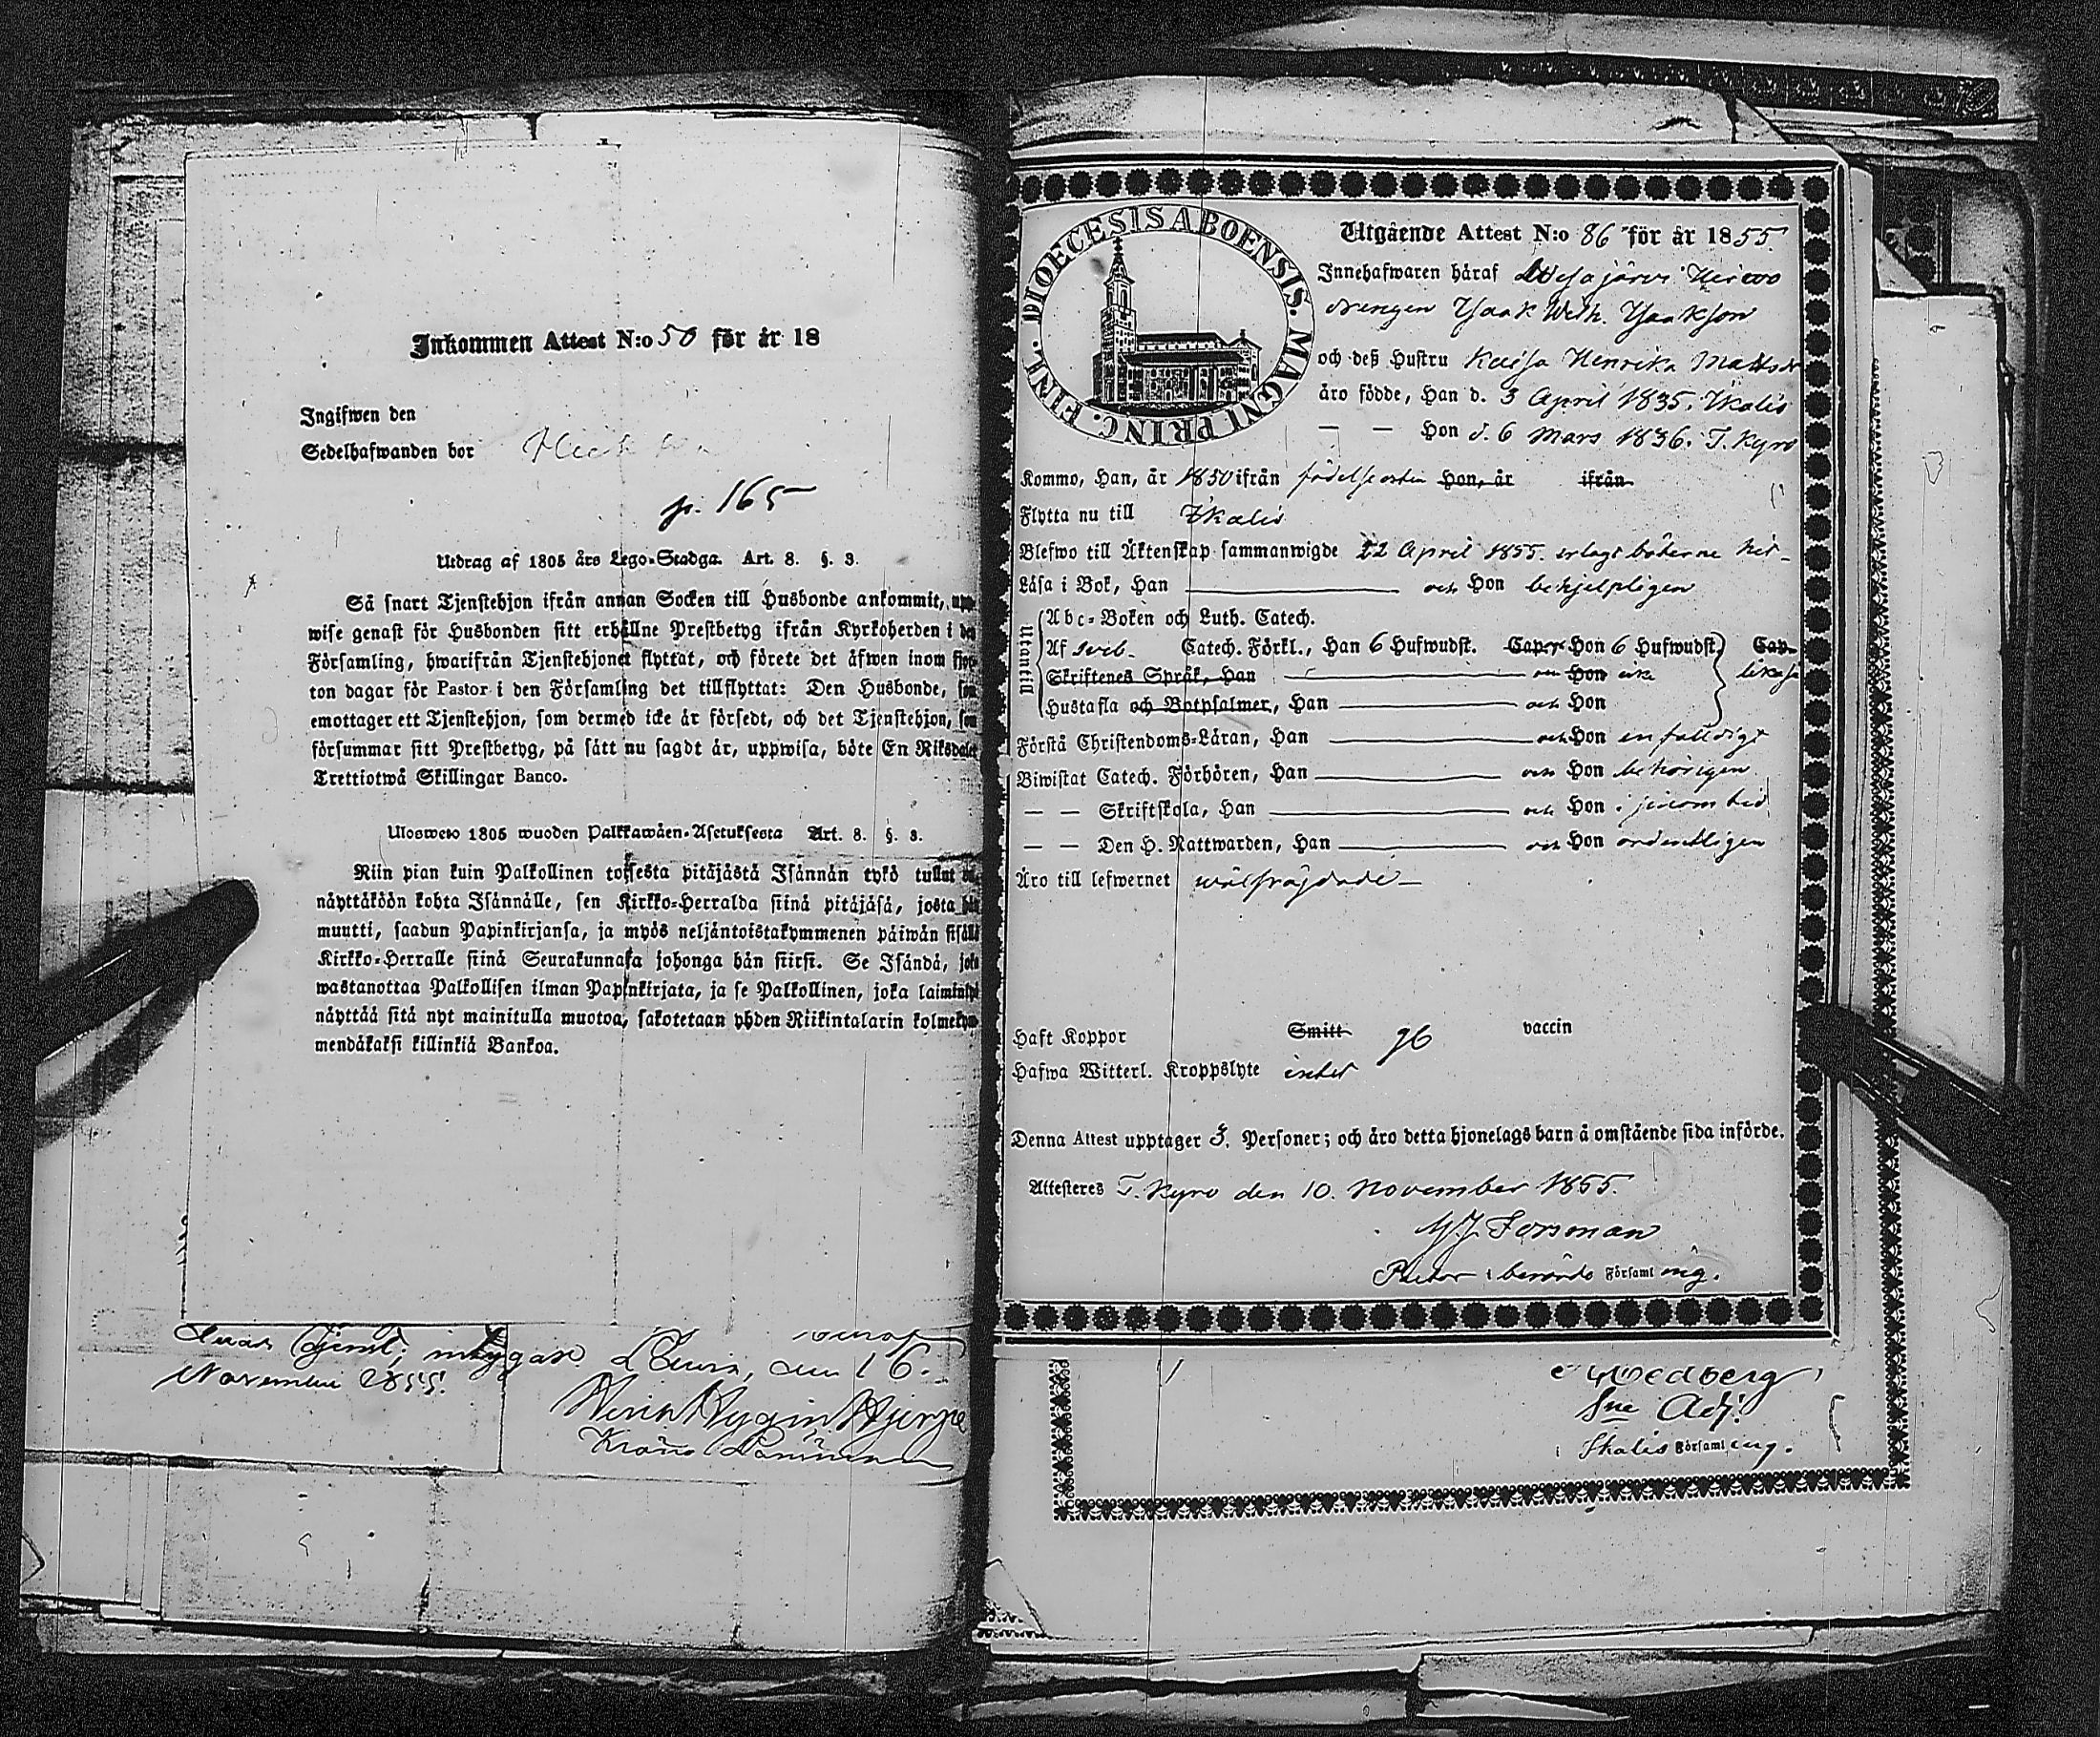 Inkommen Attest N:o 50 för år 18
Ingifwen den
Sedelhafwanden bor
p. 165
Utdrag af 1805 års Lego-Stadga. Art. 8. §. 3.
Så snart Tjenstehjon ifrån annan Socken till Husbonde ankommit, upp-
wise genast för Husbonden sitt erhållne Prestbetyg ifrån Kyrkoherden i den
Församling, hwarifrån Tjenstehjonet flyttat, och förete det äfwen inom fjor-
ton dagar för Pastor i den Församling det tillflyttat: Den Husbonde, som
emottager ett Tjenstehjon, som dermed icke är försedt, och det Tjenstehjon, som
försummar sitt Prestbetyg, på sätt nu sagdt är, uppwisa, böte En Riksdaler
Trettiotwå Skillingar Banco.
Ulosweto 1805 wuoden Palkkawäen-Asetuksesta Art. 8. §. 3.
Niin pian kuin Palkollinen toisesta pitäjästä Isännän tykö tullut on
näyttäköön kohta Isännälle, sen Kirkko-Herralda siinä pitäjäsä, josta hän
muutti, saadun Papinkirjansa, ja myös neljäntoistakymmenen päiwän sisällä
Kirkko-Herralle siinä Seurakunnasa johonga hän siirsi. Se Isändä, joka
wastanottaa Palkollisen ilman Papinkirjata, ja se Palkollinen, joka laiminlyö
näyttää sitä nyt mainitulla muotoa, sakotetaan yhden Riikintalarin kolmekym-
mendäkaksi killinkiä Bankoa.
den 16.
November 1855.
DIOECESIS ABOENSIS. MAGNI PRINC. FINL.
Utgående Attest N:o 86 för år 1855.
Innehafwaren häraf Wesajärvi Heiwo
drengen Isaak Wilh. Isaaksson
och deß Hustru Kaisa Henrika Mattsdr
äro födde, Han d. 3 April 1835. Ikalis
— — Hon d. 6 Mars 1836. T. Kyro
Kommo, Han, år 1850 ifrån födelseorten Hon, år ifrån
Flytta nu till Ikalis
Blefwo till Äktenskap sammanwigde 22 April 1855. erlagt böterne här
Läsa i Bok, Han och Hon behjelpligen
Utantill
Abc-Boken och Luth. Catech.
Af Sveb. Catech. Förkl., Han 6 Hufwudst. Cap. Hon 6 Hufwudst. Cap.
Skriftenes Språk, Han och Hon icke likaså
Hustafla och Botpsalmer, Han och Hon
Förstå Christendoms-Läran, Han och Hon enfaldigt
Biwistat Catech. Förhören, Han och Hon behörigen
— — Skriftskola, Han och Hon i sinom tid
— — Den H. Nattwarden, Han och Hon ordentligen
Äro till lefwernet wälfräjdade
Haft Koppor Smitt vaccin
Hafwa Witterl. Kroppslyte intet
Denna Attest upptager 3. Personer; och äro detta hjonelags barn å omstående sida införde.
Attesteres T. Kyro den 10. November 1855.
Forsman
Pastor i berörde Församling.
Adj.
i Ikalis Församling.